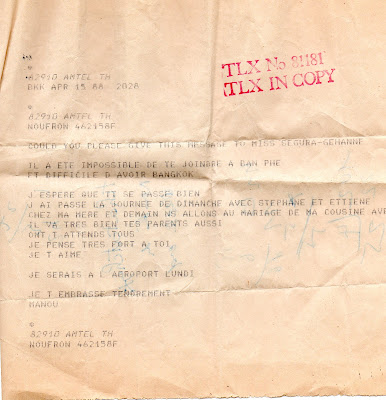 TLX No 81181
TLX IN COPY
82910 AMTEL TH
BKK APR 15 88 2028
82910 AMTEL TH
NOUFRON 462158F
COULD YOU PLEASE GIVE THIS MESSAGE TO MISS SEGURA-GEHANNE
IL A ETE IMPOSSIBLE DE TE JOINDRE A BAN PHE
ET DIFFICILE D AVOIR BANGKOK
J ESPERE QUE TT SE PASSE BIEN
J AI PASSE LA JOURNEE DE DIMANCHE AVEC STEPHANE ET ETTIENE
CHEZ MA MERE ET DEMAIN NS ALLONS AU MARIAGE DE MA COUSINE AVR
IL VA TRES BIEN TES PARENTS AUSSI
ONT T ATTENDS TOUS
JE PENSE TRES FORT A TOI
JE T AIME
JE SERAIS A L AEROPORT LUNDI
JE T EMBRASSE TENDREMENT
MANOU
82910 AMTEL TH
NOUFRON 462158F